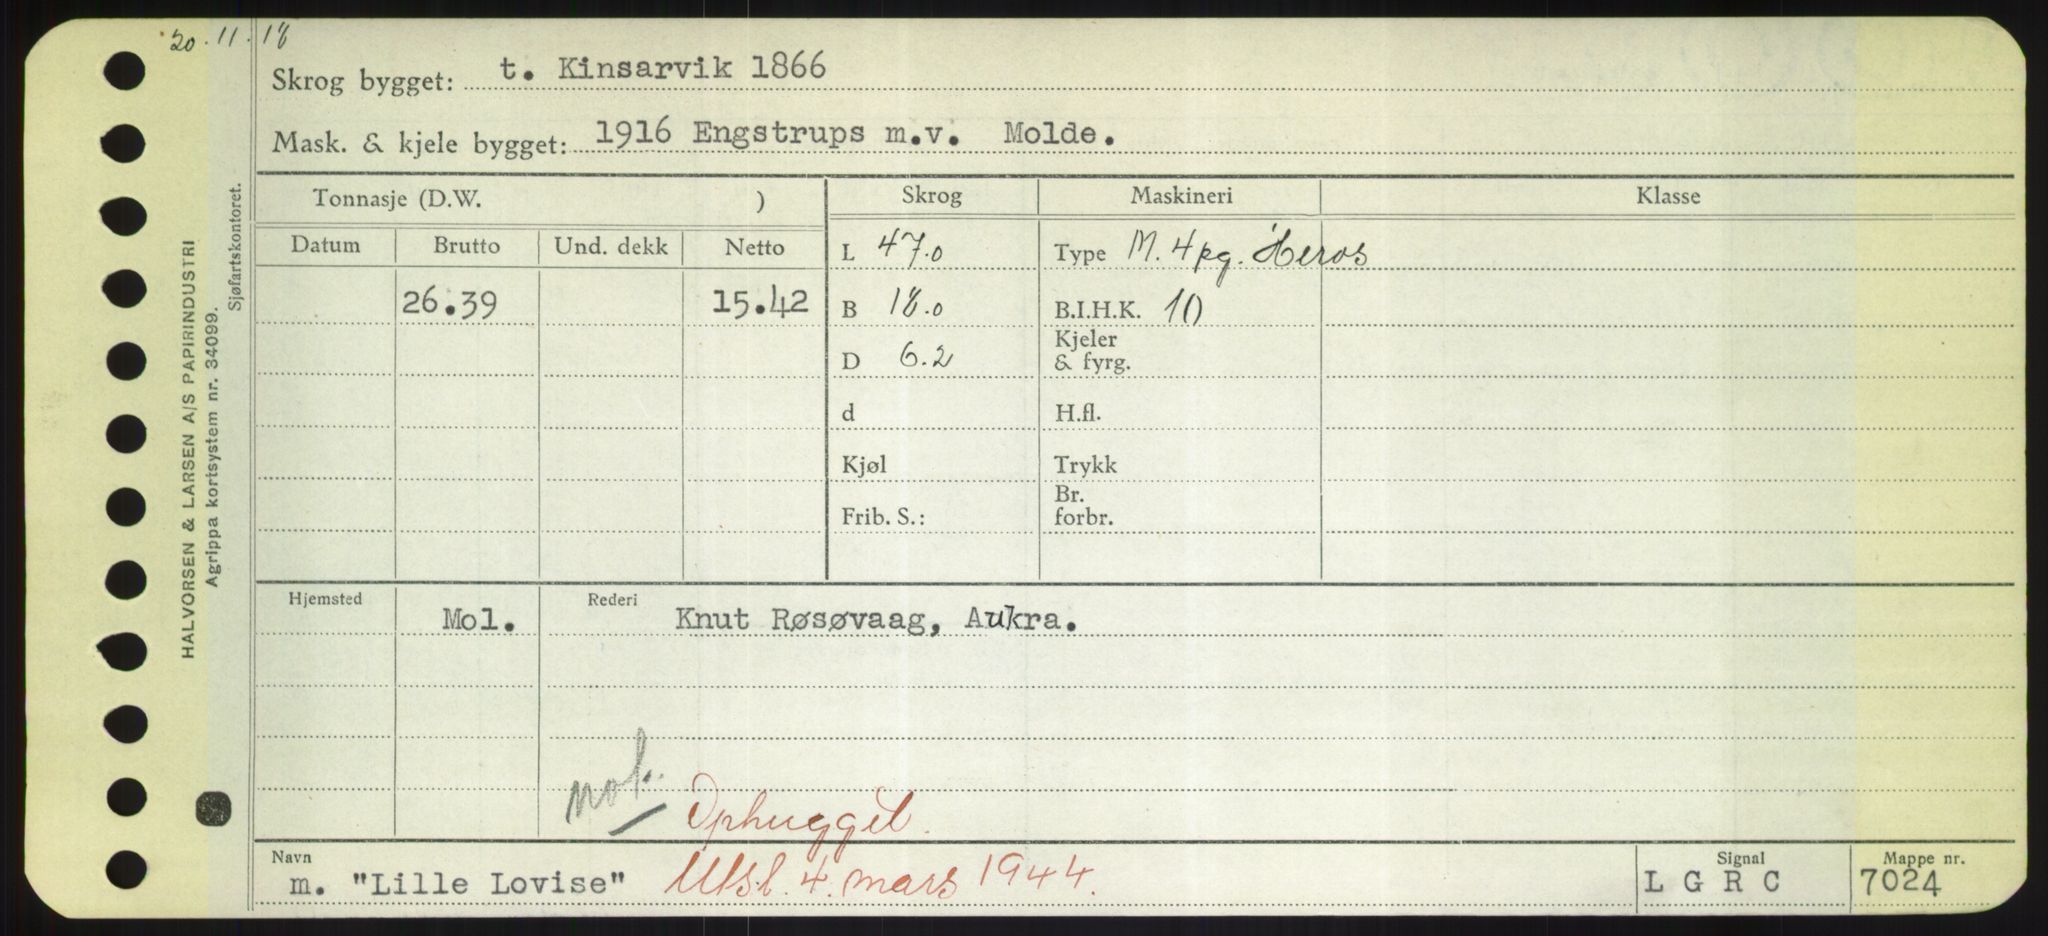 20.11.18
Skrog bygget: t. Kinsarvik 1866
Mask. & kjele bygget: 1916 Engstrups m.v. Molde.
Tonnasje (D.W. )
Skrog
Maskineri
Klasse
Datum Brutto Und. dekk Netto
26.39 15.42
L 47.0
B 18.0
D 6.2
d
Kjøl
Frib. S.:
Type M. 4pg. Heros
B.I.H.K. 10
Kjeler
& fyrg.
H.fl.
Trykk
Br.
forbr.
Hjemsted Rederi
Mol. Knut Røsøvaag, Aukra.
Ophugget.
Navn
m. "Lille Lovise" Utsl. 4. mars 1944.
Signal
L G R C
Mappe nr.
7024
HALVORSEN & LARSEN A/S PAPIRINDUSTRI
Agrippa kortsystem nr. 34099.
Sjøfartskontoret.